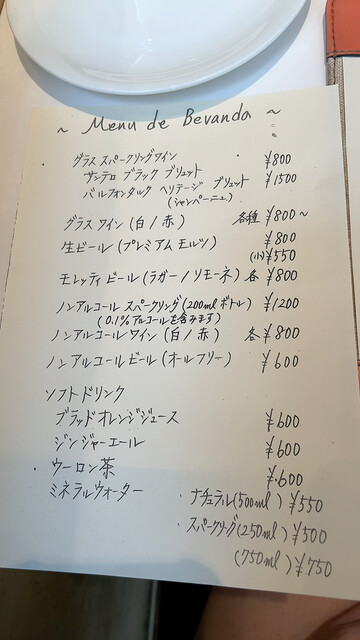 ~ Menu de Bevanda ~
グラス スパークリングワイン ¥800
サンテロ ブラック ブリュット
バルフォンタルク ヘリテージ ブリュット ¥1500
(シャンパーニュ)
グラスワイン (白/赤) 各種 ¥800~
生ビール (プレミアム モルツ) ¥800
(小) ¥550
モレッティ ビール (ラガー/リモーネ) 各 ¥800
ノンアルコール スパークリング (200mlボトル) ¥1200
(0.1%アルコールを含みます)
ノンアルコールワイン (白/赤) 各 ¥800
ノンアルコールビール (オールフリー) ¥600
ソフトドリンク
ブラッドオレンジジュース ¥600
ジンジャーエール ¥600
・ウーロン茶 ¥600
ミネラルウォーター ・ナチュラル(500ml) ¥550
・スパークリング(250ml) ¥500
(750ml) ¥750